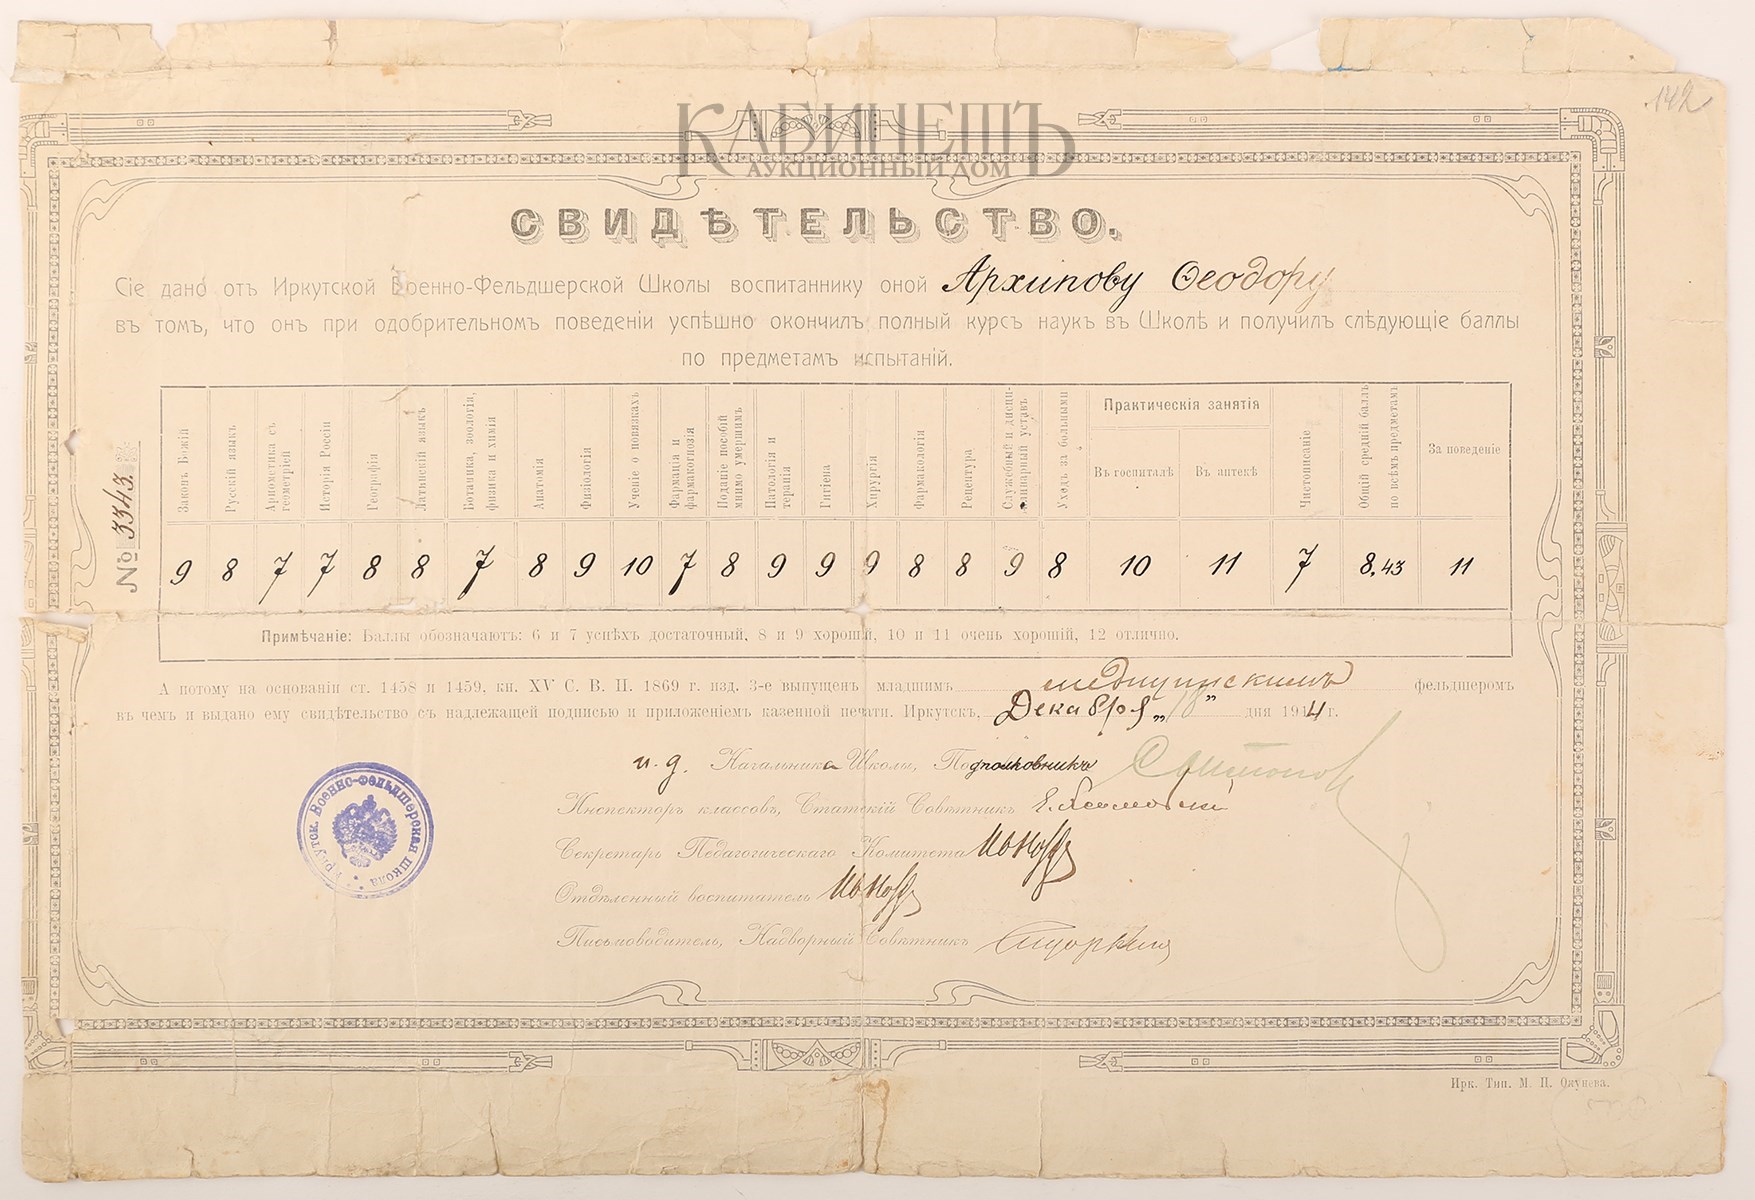 142
КАБИНЕТЪ
АУКЦИОННЫЙ ДОМ
СВИДѢТЕЛЬСТВО.
Сіе дано отъ Иркутской Военно-Фельдшерской Школы воспитаннику оной Архипову Ѳеодору
въ томъ, что онъ при одобрительномъ поведеніи успѣшно окончилъ полный курсъ наукъ въ Школѣ и получилъ слѣдующіе баллы
по предметамъ испытаній.
№ 3343.
Законъ Божій
Русскій языкъ
Ариѳметика съ геометріей
Исторія Россіи
Географія
Латинскій языкъ
Ботаника, зоологія, физика и химія
Анатомія
Физіологія
Ученіе о повязкахъ
Фармація и фармакогнозія
Поданіе пособій мнимо умершимъ
Патологія и терапія
Гигіена
Хирургія
Фармакологія
Рецептура
Служебный и дисциплинарный уставъ
Уходъ за больными
Практическія занятія
Въ госпиталѣ
Въ аптекѣ
Чистописаніе
Общій средній баллъ по всѣмъ предметамъ
За поведеніе
9 8 7 7 8 8 7 8 9 10 7 8 9 9 9 8 8 9 8 10 11 7 8,43 11
Примѣчаніе: Баллы обозначаютъ: 6 и 7 успѣхъ достаточный, 8 и 9 хорошій, 10 и 11 очень хорошій, 12 отлично.
А потому на основаніи ст. 1458 и 1459, кн. XV С. В. П. 1869 г. изд. 3-е выпущенъ младшимъ медицинскимъ фельдшеромъ
въ чемъ и выдано ему свидѣтельство съ надлежащей подписью и приложеніемъ казенной печати. Иркутскъ, Декабря „18" дня 1914 г.
и. д. Начальника Школы, Подполковникъ
Инспекторъ классовъ, Статскій Совѣтникъ
Секретарь Педагогическаго Комитета
Отдѣленный воспитатель
Письмоводитель, Надворный Совѣтникъ
Иркутск. Военно-Фельдшерская школа
Ирк. Тип. М. П. Окунева.